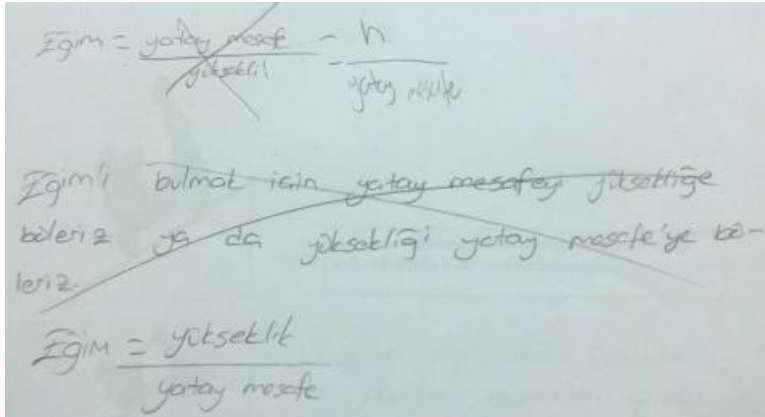 Eğim = yatay mesafe / yükseklik = h / yatay mesafe
Eğim'i bulmak için yatay mesafeyi yüksekliğe
böleriz ya da yüksekliği yatay mesafe'ye bö-
leriz.
Eğim = yükseklik / yatay mesafe